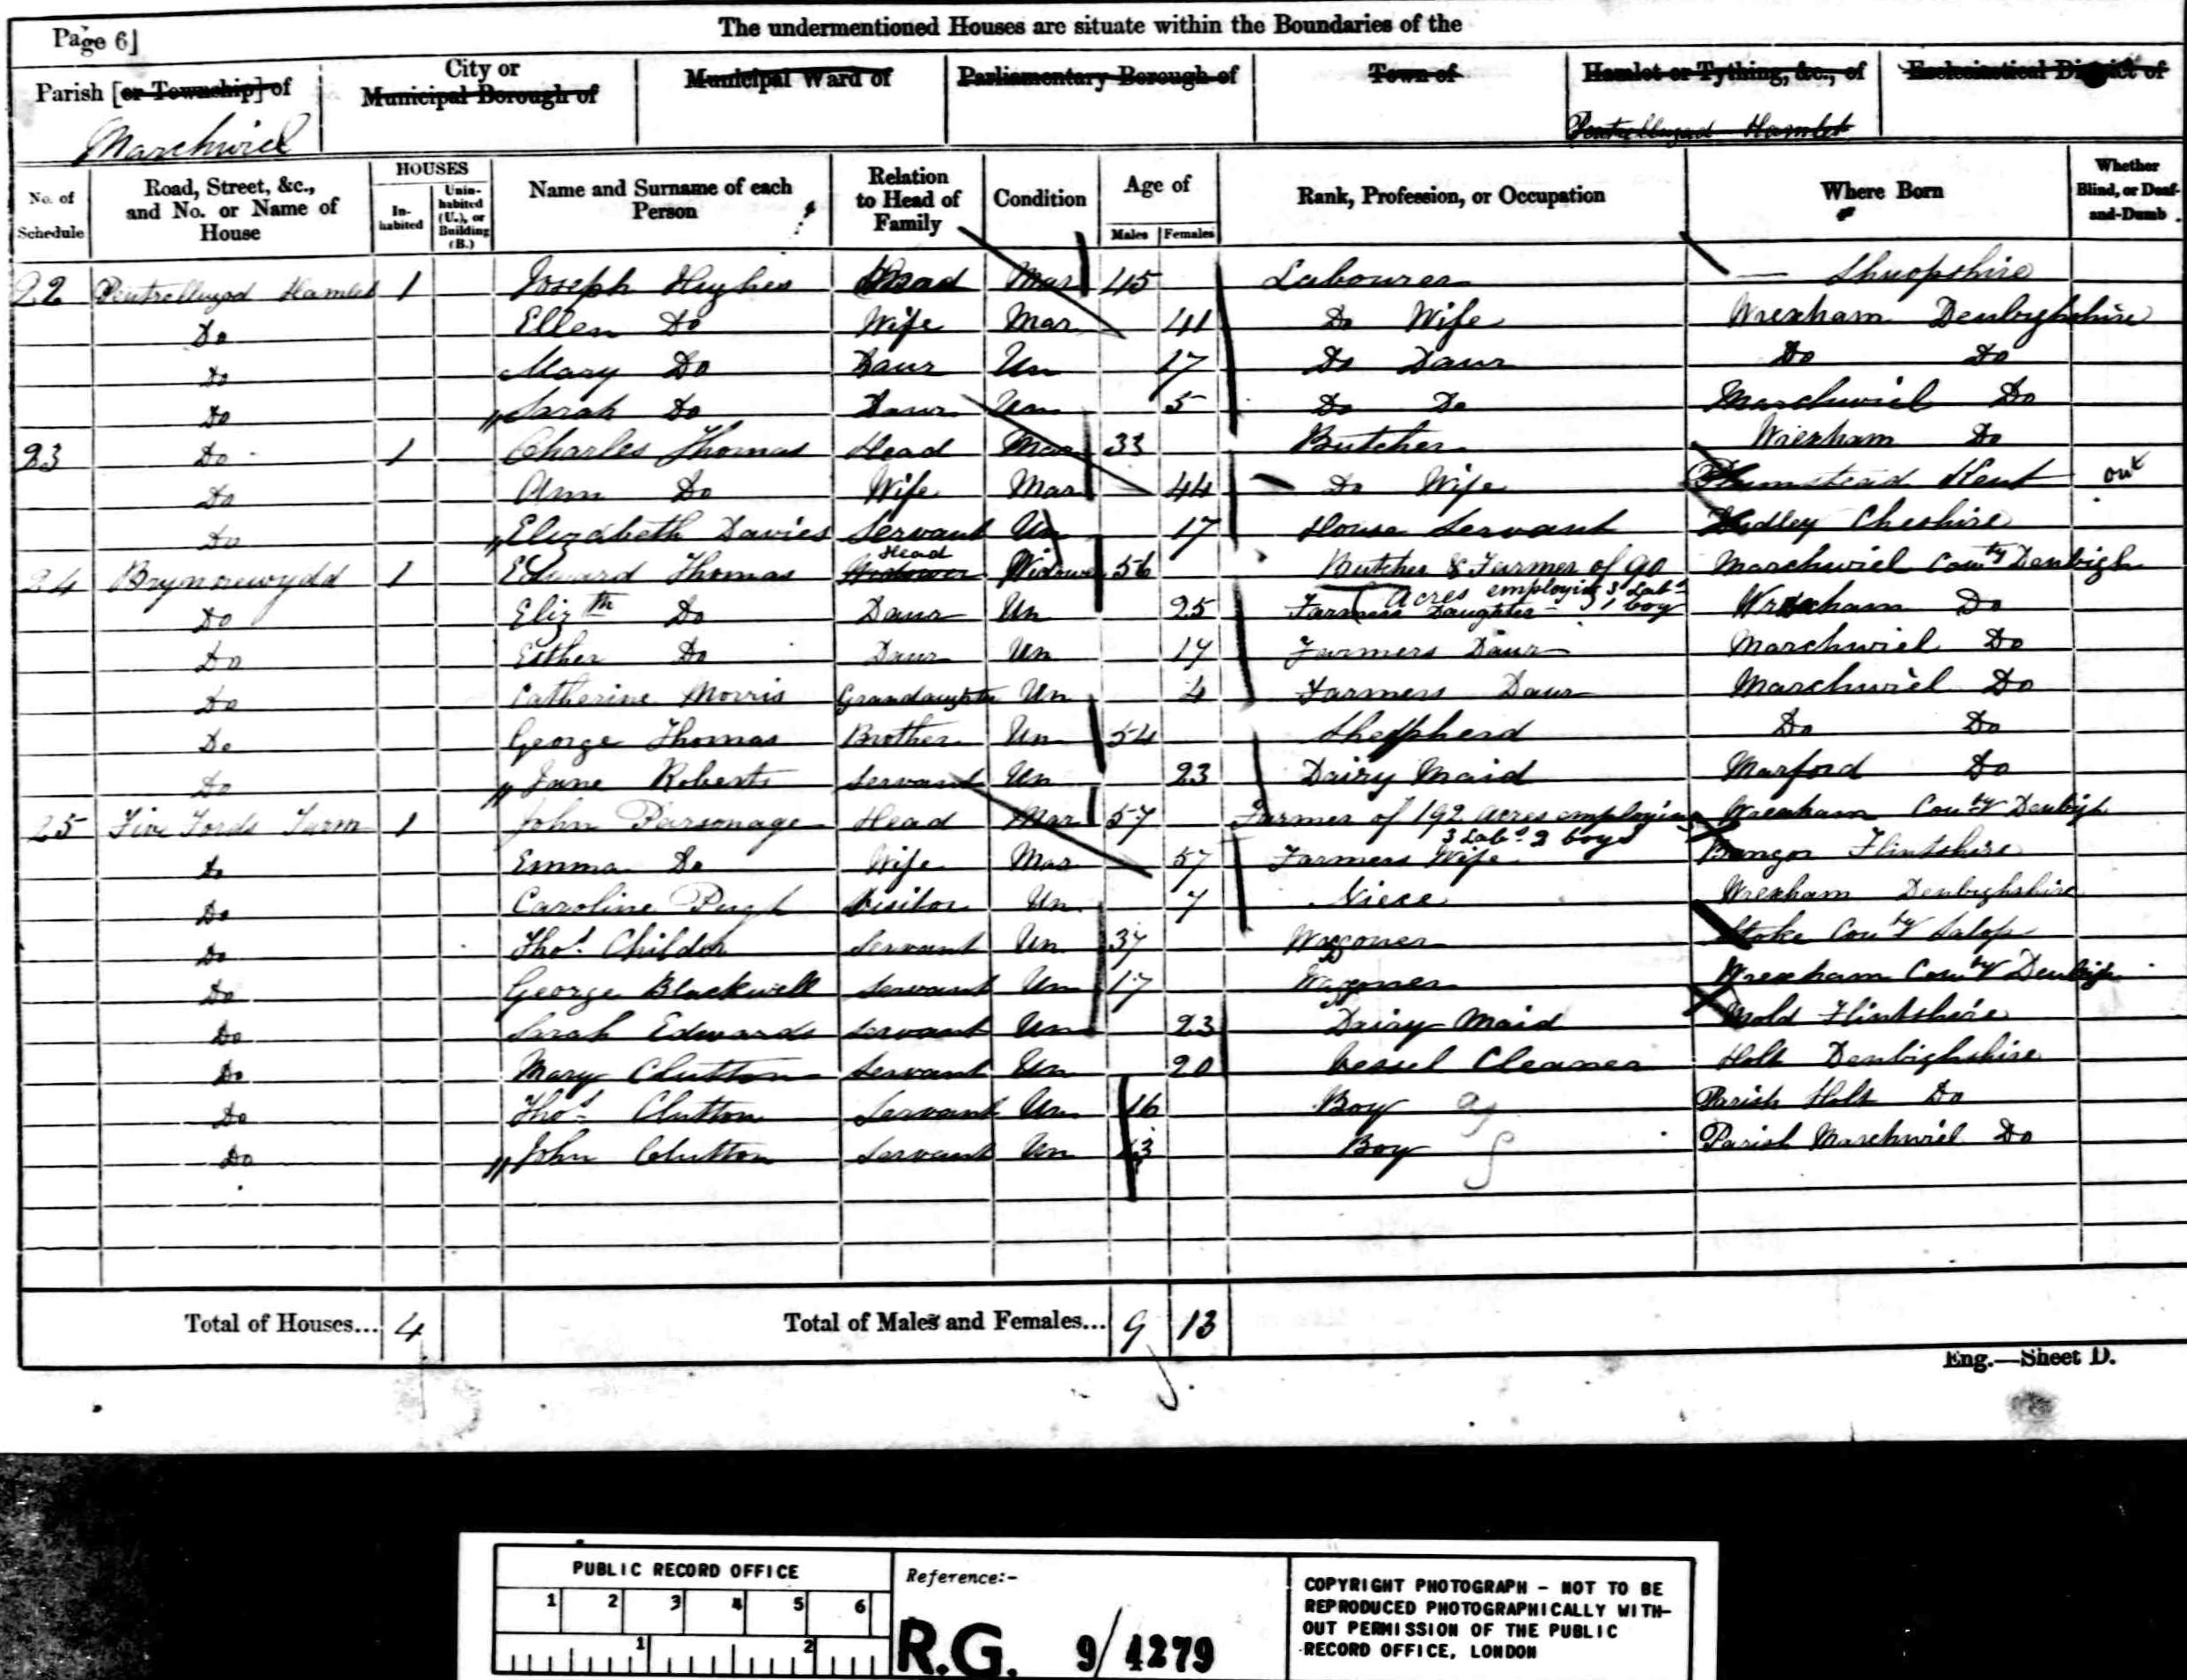 Page 6]
The undermentioned Houses are situate within the Boundaries of the
Parish [or Township] of
City or Municipal Borough of
Municipal Ward of
Parliamentary Borough of
Town of
Hamlet or Tything, &c., of
Ecclesiastical District of
Marchwiel
Pentrellwyd Hamlet
No. of Schedule
Road, Street, &c., and No. or Name of House
HOUSES
Inhabited
Uninhabited (U.), or Building (B.)
Name and Surname of each Person
Relation to Head of Family
Condition
Age of
Males
Females
Rank, Profession, or Occupation
Where Born
Whether Blind, or Deaf-and-Dumb
22 Pentrellwyd Hamlet 1 Joseph Hughes Head Mar 45 Labourer — Shropshire
Do Ellen Do Wife Mar 41 Do Wife Wrexham Denbighshire
Do Mary Do Daur Un 17 Do Daur Do Do
Do Sarah Do Daur Un 5 Do Do Marchwiel Do
23 Do 1 Charles Thomas Head Mar 33 Butcher Wrexham Do
Do Ann Do Wife Mar 44 Do Wife Plumstead Kent out
Do Elizabeth Davies Servant Un 17 House Servant Cheshire
24 1 Edward Thomas Widower Head Widower 56 Butcher & Farmer of 90 Acres employing 3 Labs 1 boy Marchwiel County Denbigh
Do Elizth Do Daur Un 25 Farmers Daughter Wrexham Do
Do Esther Do Daur Un 17 Farmers Daur Marchwiel Do
Do Catherine Morris Grandaughter Un 4 Farmers Daur Marchwiel Do
Do George Thomas Brother Un 54 Shepherd Do Do
Do Jane Roberts Servant Un 23 Dairy Maid Marford Do
25 Five Fords Farm 1 John Parsonage Head Mar 57 Farmer of 192 acres employing 3 Labs 2 boys Wrexham County Denbigh
Do Emma Do Wife Mar 57 Farmers Wife Bangor Flintshire
Do Caroline Pugh Visitor Un 7 Niece Wrexham Denbighshire
Do Thos Servant Un 37 Waggoner Stoke County Salop
Do George Blackwell Servant Un 17 Waggoner Wrexham County Denbigh
Do Sarah Edwards Servant Un 23 Dairy Maid Mold Flintshire
Do Mary Clutton Servant Un 20 Vessel Cleaner Holt Denbighshire
Do Thos Clutton Servant Un 16 Boy Parish Holt Do
Do John Clutton Servant Un 13 Boy Parish Marchwiel Do
Total of Houses... 4
Total of Males and Females... 9 13
Eng.—Sheet D.
PUBLIC RECORD OFFICE
1 2 3 4 5 6
1 2
Reference:-
R.G. 9/4279
COPYRIGHT PHOTOGRAPH - NOT TO BE
REPRODUCED PHOTOGRAPHICALLY WITH-
OUT PERMISSION OF THE PUBLIC
RECORD OFFICE, LONDON